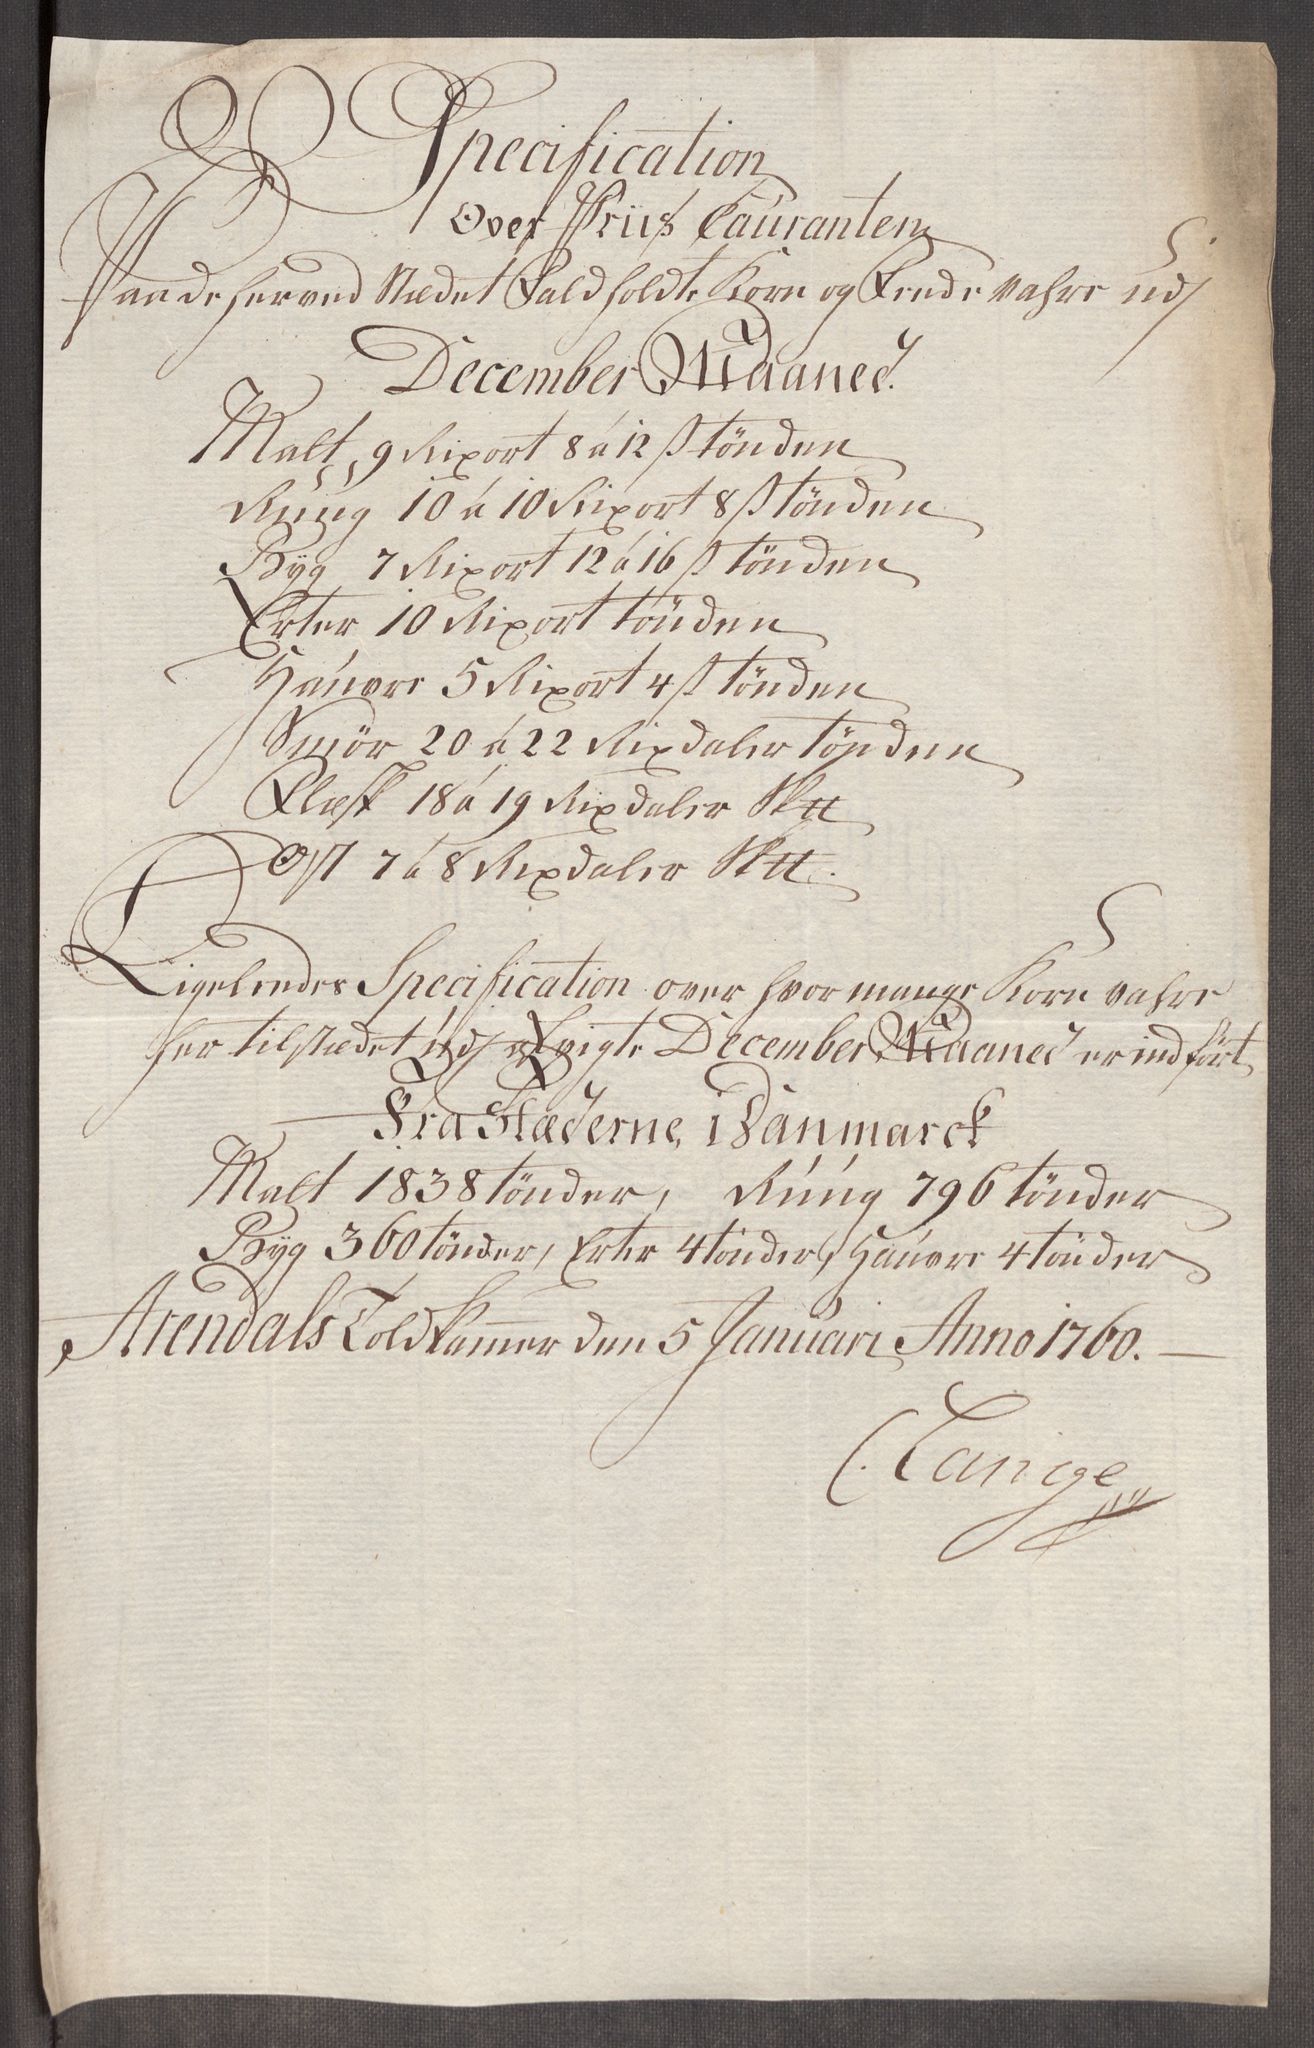 Specification
Over Priis Cauranten
Paa de her ved Stædet Fald holdte Korn og Fende vahre udj
December Maaned.
Malt 9 Rixort 8 a 12 ß tönden
Rúúg 10 a 10 Rixort 8 ß tönden
Byg 7 Rixort 12 a 16 ß tönden
Erter 10 Rixort tönden
Haúvre 5 Rixort 4 ß tönden
Smör 20 a 22 Rixdaler tönden
Flæsk 18 a 19 Rixdaler Sk℔
Ost 7 a 8 Rixdaler Sk℔.
Ligeleedes Specification over hvor mange Korn vahre
her til stædet údj December Maaned er ind fört
Fra Stæderne i Danmarck
Malt 1838 tönder, Rúúg 796 tönder
Byg 360 tönder, Erter 4 tönder, Haúvre 4 tönder
Arendals Told Kammer den 5 Januari Anno 1760.
C. Lange